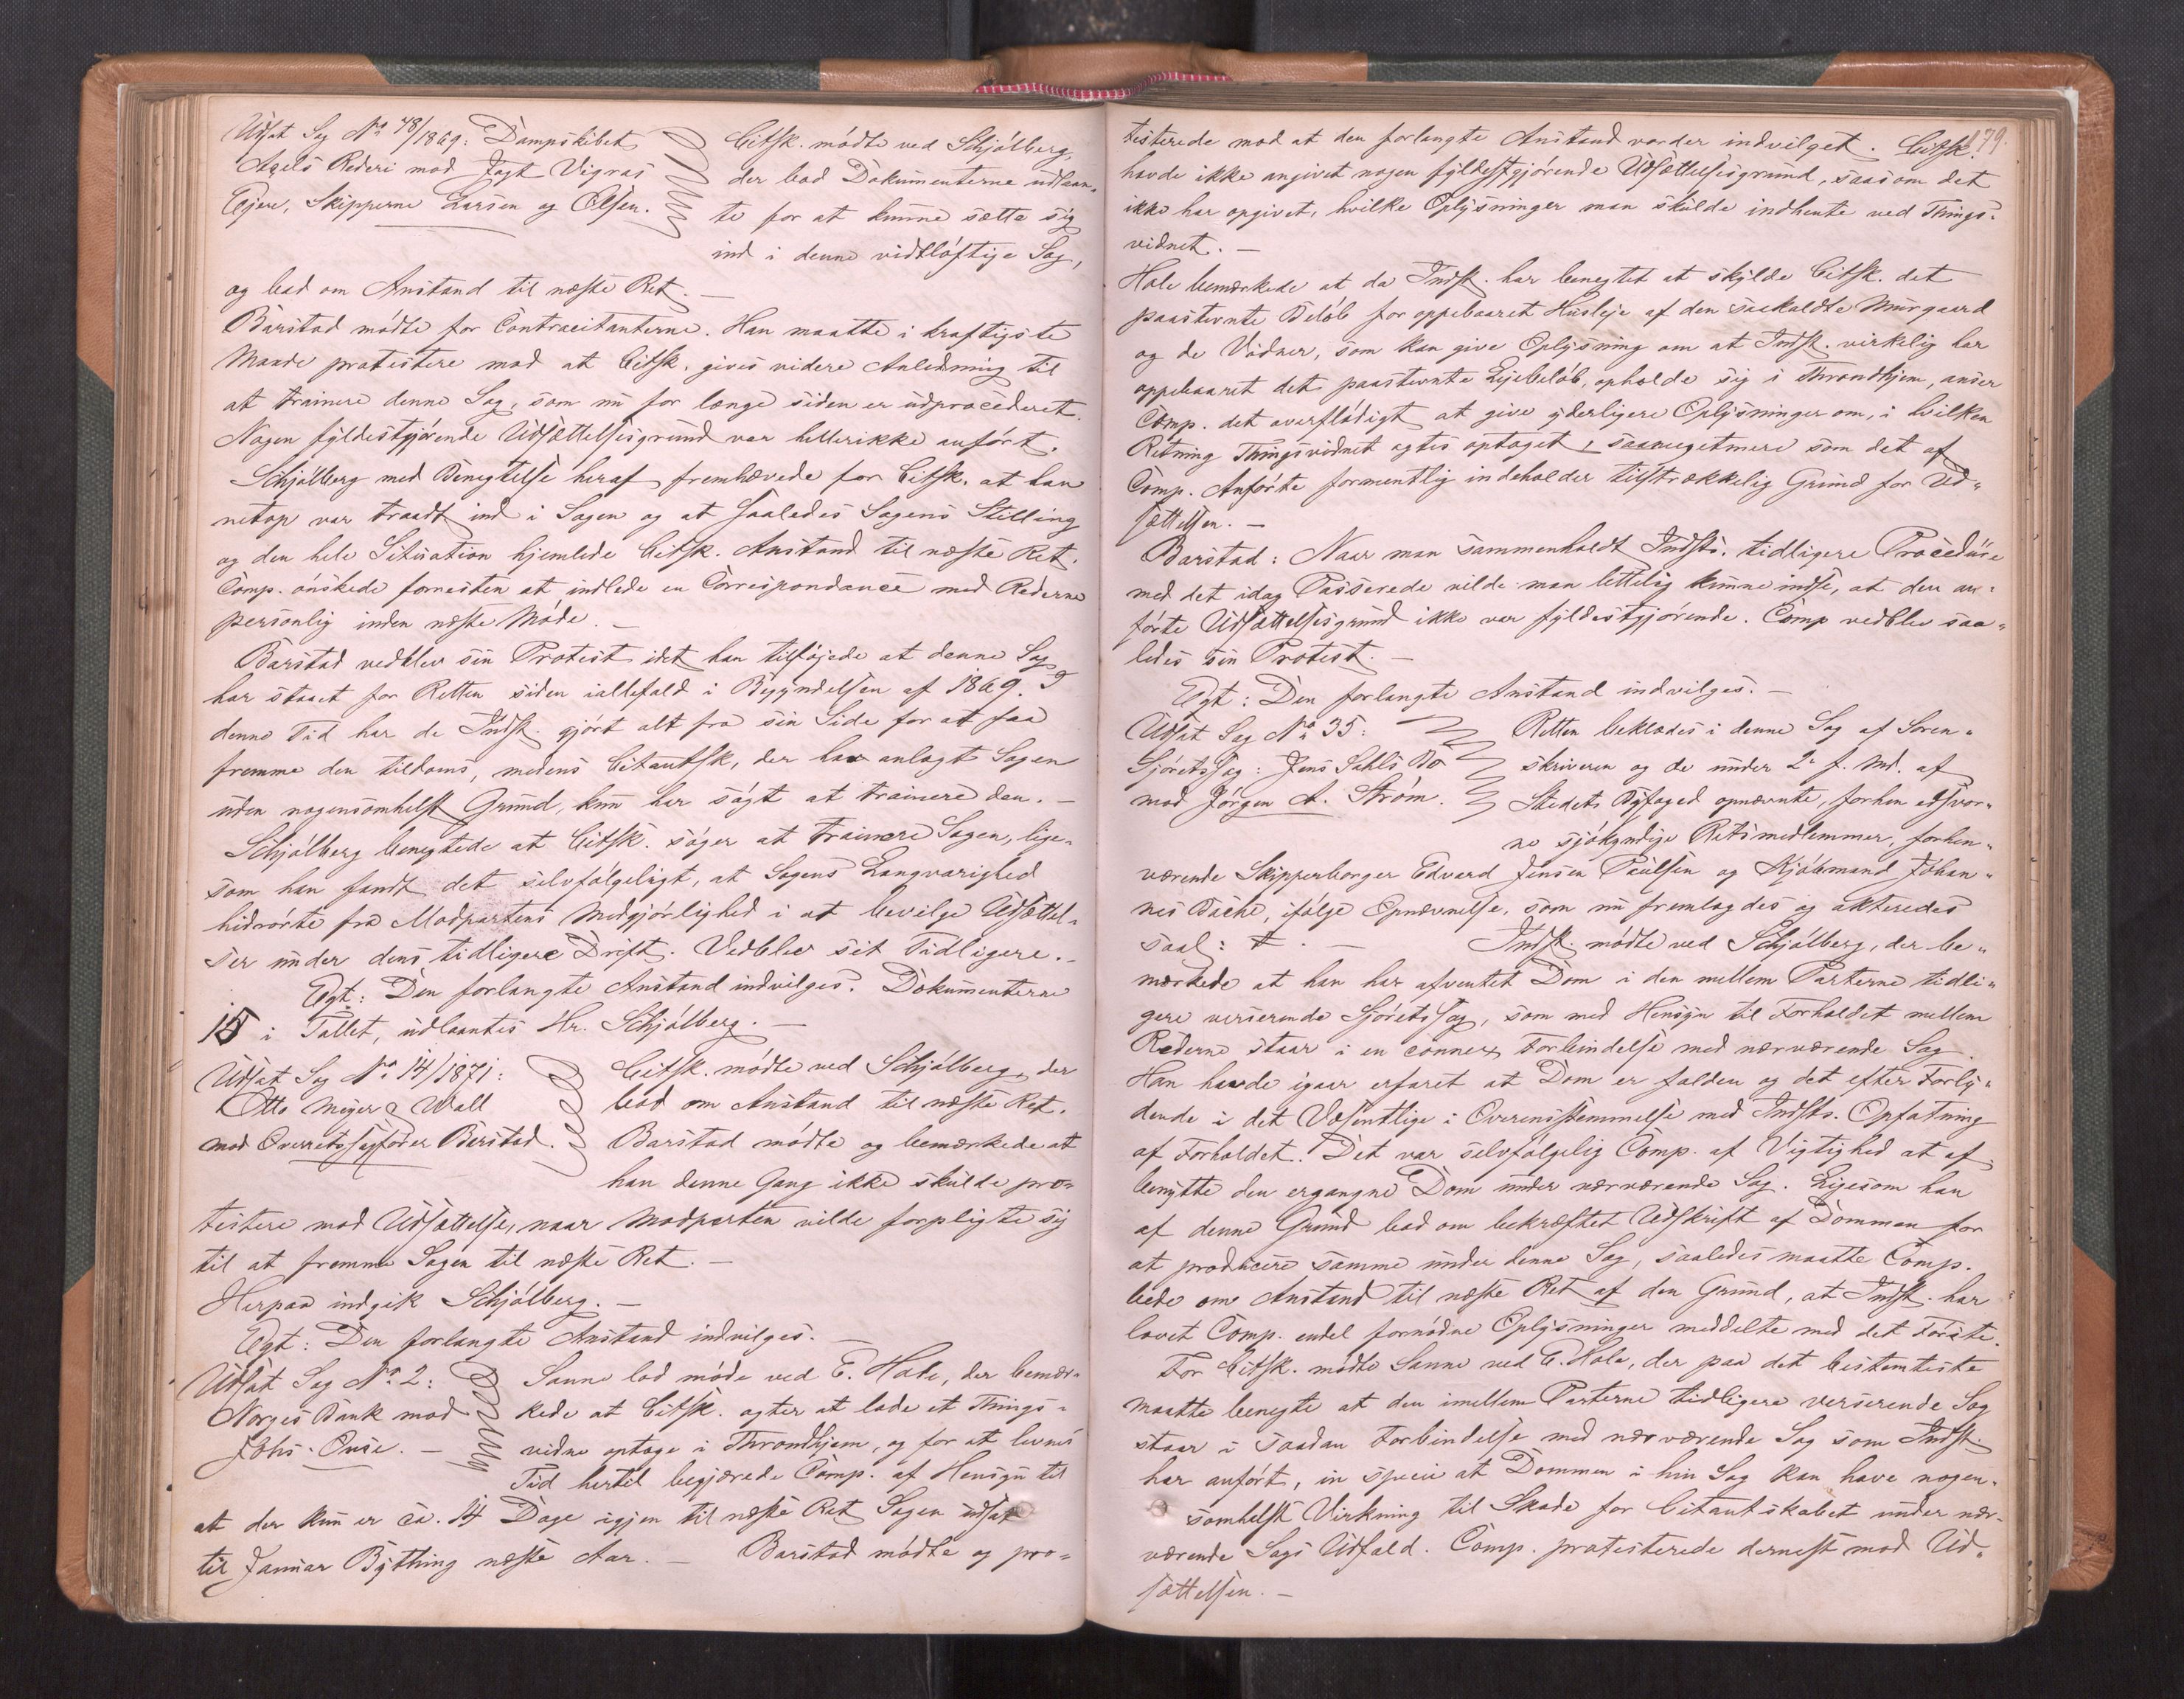 Udsat Sag No 48/1869: Dampskibet
Axels Rederi mod Jagt Vigras
Ejere, Skipperne Larsen og Olsen.
Citsk. mödte ved Schjölberg,
der bad Dokumenterne udlaan-
te for at kunne sætte sig
ind i denne vidtlöftige Sag,
og bad om Anstand til næste Ret. —
Barstad mödte for Contracitanterne. Han maatte i kraftigste
Maade protestere mod at Citsk. gives videre Anledning til
at trainere denne Sag, som nu for længe siden er udprocederet.
Nogen fyldestgjörende Udsættelsesgrund var hellerikke anfört.
Schjölberg med Benegtelse heraf fremhævede for Citsk. at han
netop var traadt ind i Sagen og at saaledes Sagens Stilling
og den hele Situation hjemlede Citsk. Anstand til næste Ret.
Comp. önskede forresten at indlede en Correspondance med Rederne
personlig inden næste Möde. —
Barstad vedblev sin Protest, idet han tilföjede at denne Sag
har staaet for Retten siden iallefald i Begyndelsen af 1869. I
denne Tid har de Indst. gjört alt fra sin Side for at faa
fremme den tildoms, medens Citantsk, der har anlagt Sagen
uden nogensomhelst Grund, kun har sögt at trainere den. —
Schjölberg benegtede at Citsk. söger at trainere Sagen, lige-
som han fandt det selvfölgeligt, at Sagens Langvarighed
hidrörte fra Modpartens Medgjörlighed i at bevilge Udsættel-
ser under dens tidligere Drift. Vedblev sit Tidligere. —
Egt: Den forlangte Anstand indvilges. Dokumenterne
15 i Tallet, udlaantes Hr. Schjölberg. —
Udsat Sag No 14/1871:
Otto Meyer & Wall
mod Overretssagförer Barstad.
Citsk. mödte ved Schjölberg, der
bad om Anstand til næste Ret.
Barstad mödte og bemærkede at
han denne Gang ikke skulde pro-
testere mod Udsættelse, naar Modparten vilde forpligte sig
til at fremme Sagen til næste Ret. —
Herpaa indgik Schjölberg. —
Egt: Den forlangte Anstand indvilges. —
Udsat Sag No 2:
Norges Bank mod
Johs. Owse. —
Sanne lod möde ved E. Hole, der bemær-
kede at Citsk. agter at lade et Things-
vidne optage i Throndhjem, og for at levnes
Tid hertil begjærede Comp. af Hensyn til
at der kun er ca. 14 Dage igjen til næste Ret Sagen udsat
til Januar Bything næste Aar. — Barstad mödte og pro-
179.
testerede mod at den forlangte Anstand vorder indvilget. Citsk.
havde ikke angivet nogen fyldestgjörende Udsættelsesgrund, saasom det
ikke har opgivet, hvilke Oplysninger man skulde indhente ved Things-
vidnet. —
Hole bemærkede at da Indst. har benegtet at skylde Citsk. det
paastevnte Belöb for oppebaaret Husleje af den saakaldte Murgaard
og de Vidner, som kan give Oplysning om at Indst. virkelig har
oppebaaret det paastevnte Lejebelöb, opholde sig i Throndhjem, anser
Comp. det overflödigt at give yderligere Oplysninger om, i hvilken
Retning Thingsvidnet agtes optaget, saameget mere som det af
Comp. Anförte formentlig indeholder tilstrækkelig Grund for Ud-
sættelsen. —
Barstad: Naar man sammenholdt Indsts. tidligere Procedure
med det idag Passerede vilde man lettelig kunne indse, at den an-
förte Udsættelsesgrund ikke var fyldestgjörende. Comp vedblev saa-
ledes sin Protest. —
Egt: Den forlangte Anstand indvilges. —
Udsat Sag No 35:
Sjöretssag: Jens Sahls Bo
mod Jörgen A. Ström.
Retten beklædes i denne Sag af Soren-
skriveren og de under 2n f. Md. af
Stedets Byfoged opnævnte, forhen edsvor-
ne sjökyndige Retsmedlemmer, forhen-
værende Skipperborger Edvard Jensen Paulsen og Kjöbmand Johan-
nes Bache, ifölge Opnævnelse, som nu fremlagdes og akteredes
saal: #. — Indst. mödte ved Schjölberg, der be-
mærkede at han har afventet Dom i den mellem Parterne tidli-
gere verserende Sjöretssag, som med Hensyn til Forholdet mellem
Rederne staar i en connex Forbindelse med nærværende Sag.
Han havde igaar erfaret at Dom er falden og det efter Forly-
dende i det Væsentlige i Overensstemmelse med Indsts. Opfatning
af Forholdet. Det var selvfölgelig Comp. af Vigtighed at af-
benytte den ergangne Dom under nærværende Sag. Ligesom han
af denne Grund bad om bekræftet Udskrift af Dommen for
at producere samme under denne Sag, saaledes maatte Comp.
bede om Anstand til næste Ret af den Grund, at Indst. har
lovet Comp. endel fornödne Oplysninger meddelte med det Förste.
For Citsk. mödte Sanne ved E. Hole, der paa det bestemteste
maatte benegte at den imellem Parterne tidligere verserende Sag
staar i saadan Forbindelse med nærværende Sag som Indst.
har anfört, in specie at Dommen i hin Sag kan have nogen-
somhelst Virkning til Skade for Citantskabet under nær-
værende Sags Udfald. Comp. protesterede dernest mod Ud-
sættelsen. —